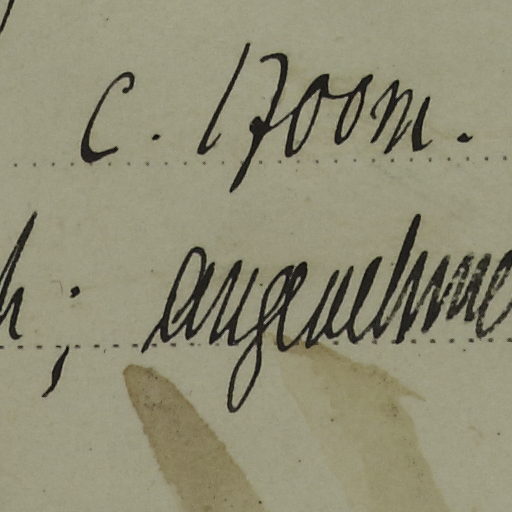 c. 1700m.
h; angenehme